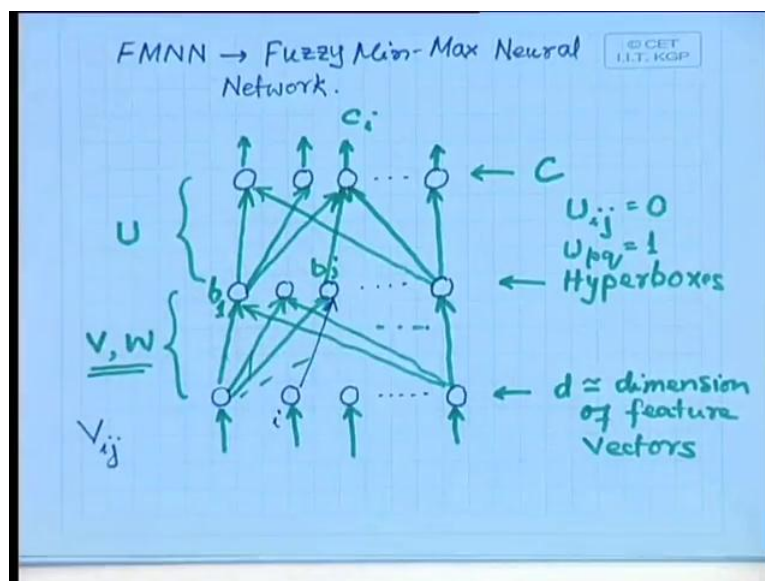 FMNN → Fuzzy Min-Max Neural
Network.
© CET
I.I.T. KGP
Ci
C
U
Uij = 0
Upq = 1
b1
bj
Hyperboxes
V, W
i
d ≃ dimension
of feature
Vectors
Vij